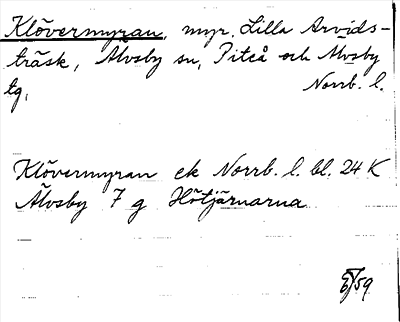 Klövermyran, myr. Lilla Arvids-
träsk, Älvsby sn, Piteå och Älvsby
tg, Norrb. l.
Klövermyran ek Norrb. l. bl. 24 K
Älvsby 7 g Hötjärnarna
/59